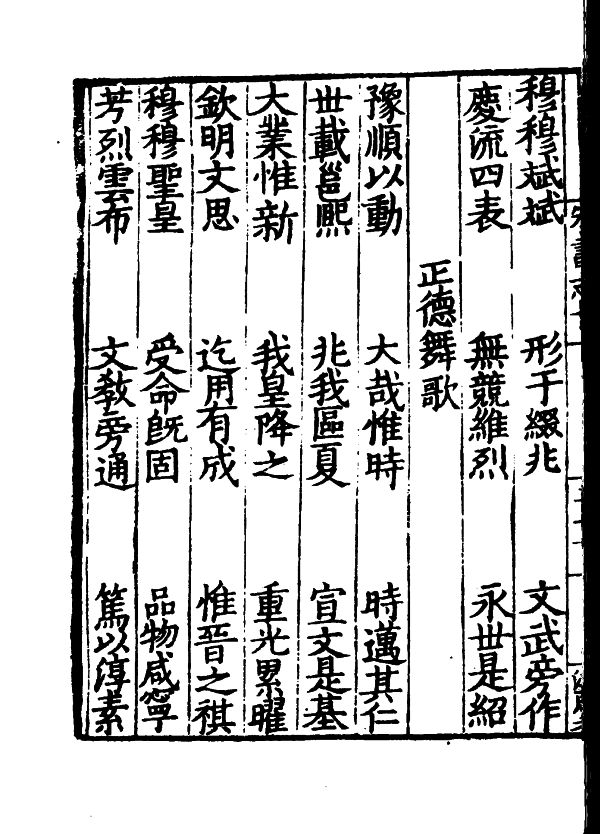 穆穆斌斌　形于綴兆　文武旁作
慶流四表　無競維烈　永世是紹
正德舞歌
豫順以動　大哉惟時　時邁其仁
世載邕熙　兆我區夏　宣文是基
大業惟新　我皇降之　重光累曜
欽明文思　迄用有成　惟晉之祺
穆穆聖皇　受命旣固　品物咸寧
芳烈雲布　文敎旁通　篤以淳素